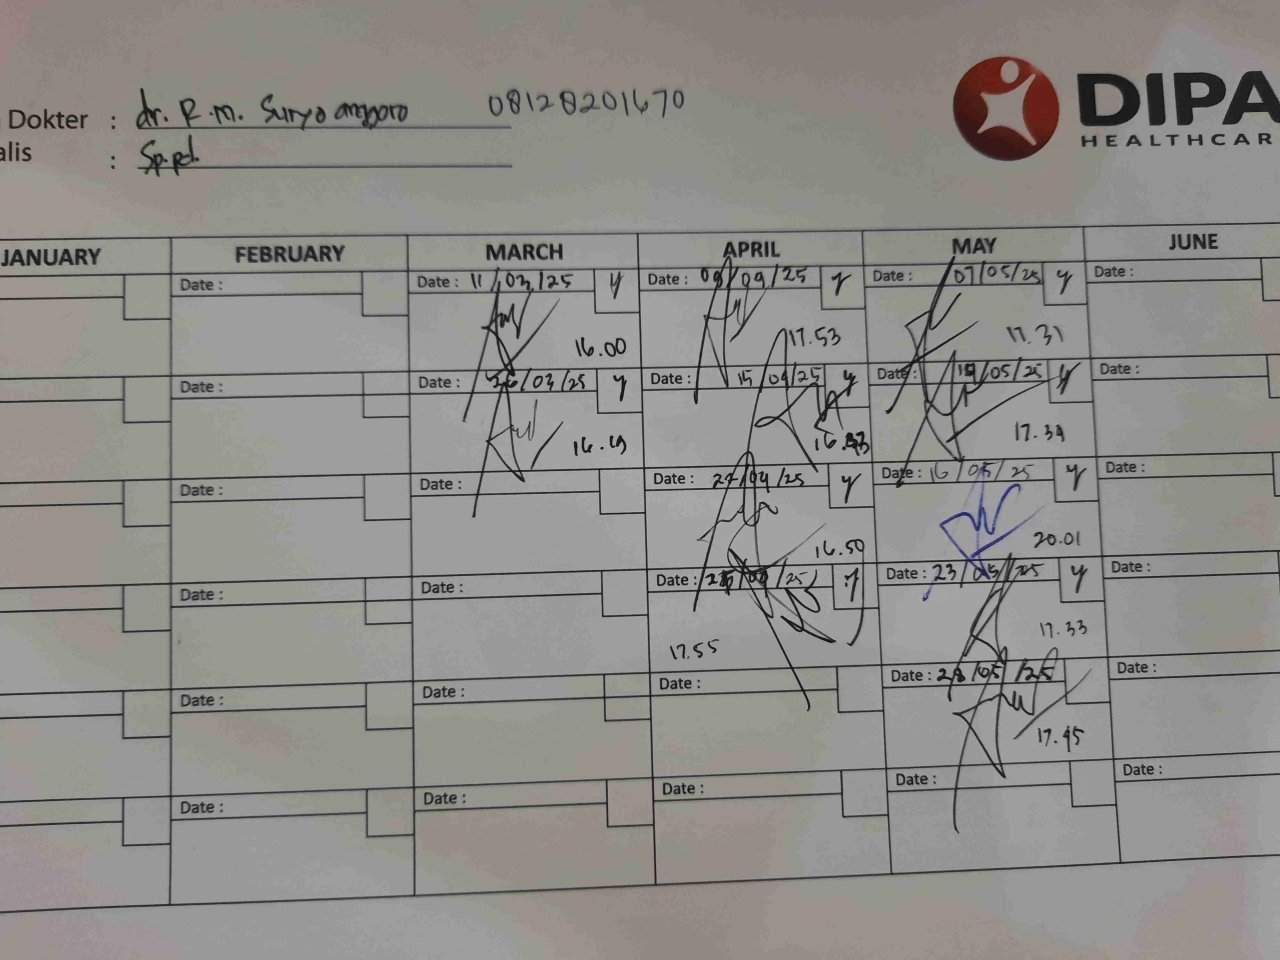 Dokter : dr. R.M. Suryo anggoro 08128201670
alis : Sp.pd.
DIPA
HEALTHCAR
JANUARY FEBRUARY MARCH APRIL MAY JUNE
Date : Date : 11/03/25 y Date : 08/04/25 y Date : 07/05/25 y Date :
16.00 17.53 17.31
Date : Date : 26/03/25 y Date : 15/04/25 y Date : /05/25 y Date :
16.49 17.34
Date : Date : Date : 22/04/25 y Date : 16/05/25 y Date :
16.50 20.01
Date : Date : Date : /25 y Date : 23/05/25 y Date :
17.55 17.33
Date : Date : Date : Date : 28/05/25 Date :
17.45
Date : Date : Date : Date : Date :